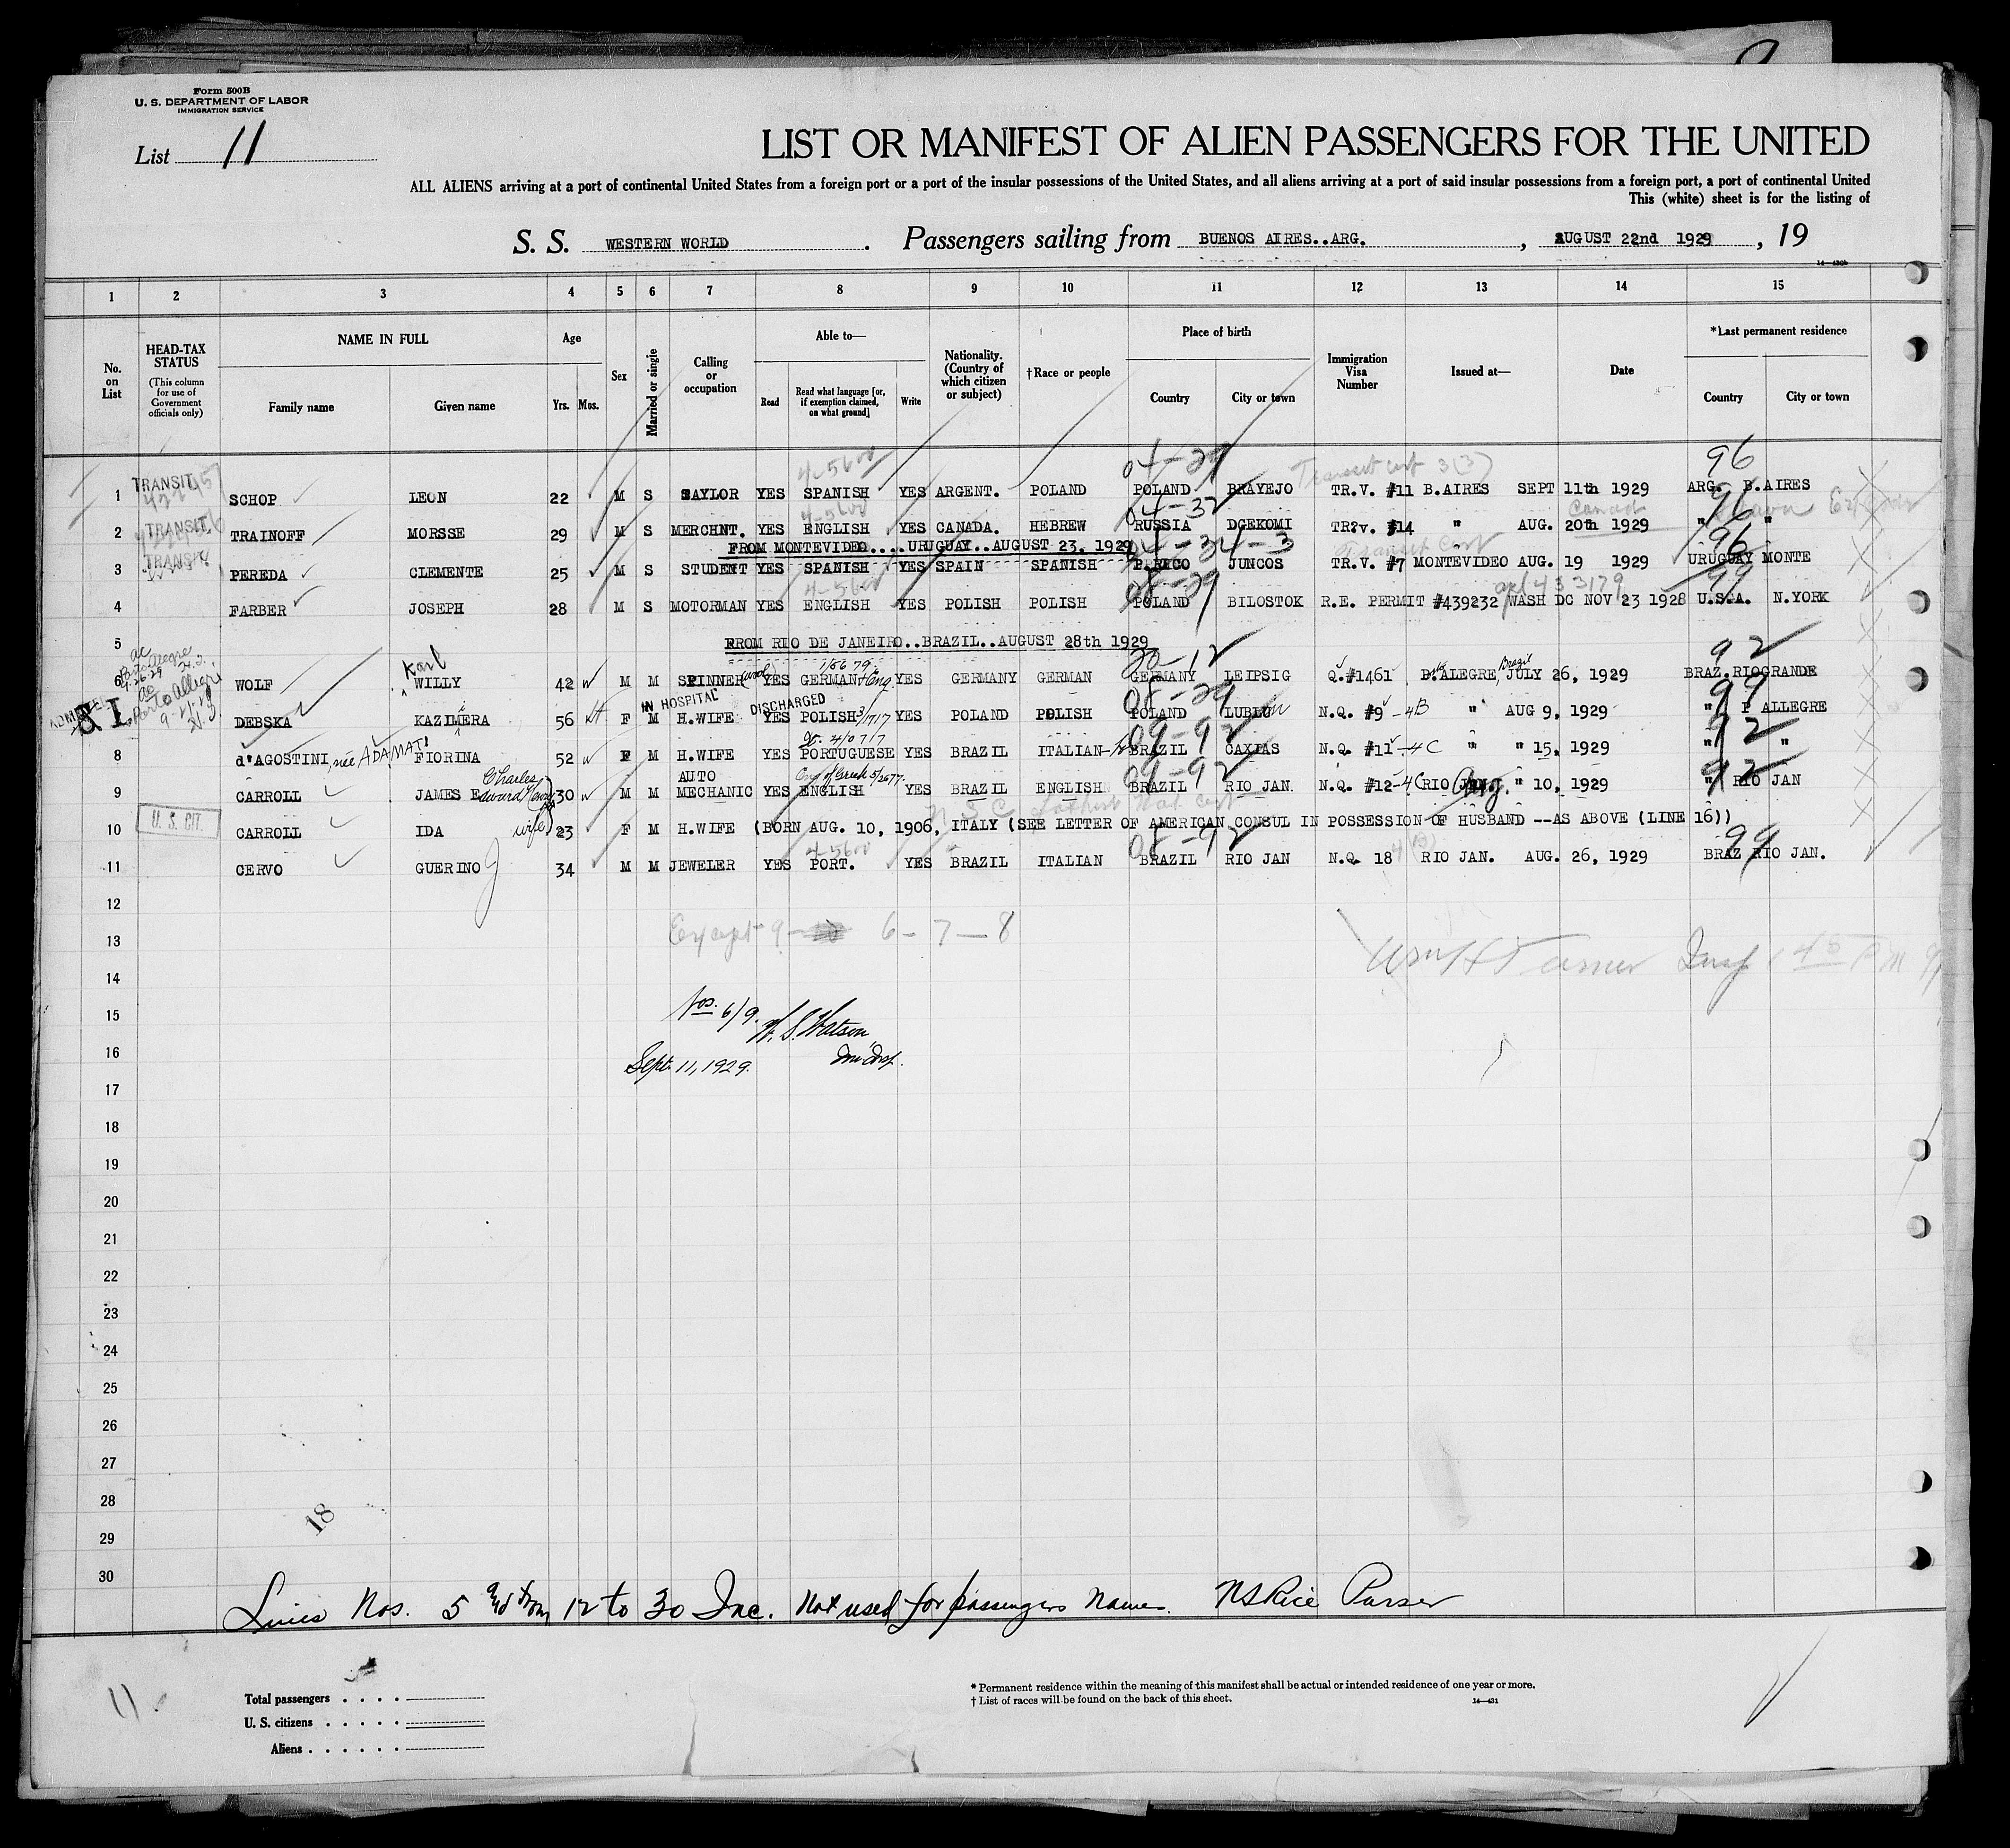 Form 500B
U. S. DEPARTMENT OF LABOR
IMMIGRATION SERVICE
List 11
LIST OR MANIFEST OF ALIEN PASSENGERS FOR THE UNITED
ALL ALIENS arriving at a port of continental United States from a foreign port or a port of the insular possessions of the United States, and all aliens arriving at a port of said insular possessions from a foreign port, a port of continental United
This (white) sheet is for the listing of
S. S. WESTERN WORLD . Passengers sailing from BUENOS AIRES..ARG. , AUGUST 22nd 1929 , 19
1 2 3 4 5 6 7 8 9 10 11 12 13 14 15
No. on List
HEAD-TAX STATUS (This column for use of Government officials only)
NAME IN FULL
Family name Given name
Age
Yrs. Mos.
Sex
Married or single
Calling or occupation
Able to—
Read
Read what language [or, if exemption claimed, on what ground]
Write
Nationality. (Country of which citizen or subject)
†Race or people
Place of birth
Country City or town
Immigration Visa Number
Issued at—
Date
*Last permanent residence
Country City or town
4-5600 04-29 Transit cert 3(3) 96
1 TRANSIT SCHOP LEON 22 M S TAYLOR YES SPANISH YES ARGENT. POLAND POLAND BRAYEJO TR.V. #11 B.AIRES SEPT 11th 1929 ARG. B.AIRES
4-5600 04-32 Canada 96
2 TRANSIT TRAINOFF MORSSE 29 M S MERCHNT. YES ENGLISH YES CANADA. HEBREW RUSSIA DGEKOMI TR?v. #14 " AUG. 20th 1929 " "
FROM MONTEVIDEO....URUGUAY..AUGUST 23, 1929
Transit Cert 96
3 TRANSIT PEREDA CLEMENTE 25 M S STUDENT YES SPANISH YES SPAIN SPANISH P.RICO JUNCOS TR.V. #7 MONTEVIDEO AUG. 19 1929 URUGUAY MONTE
4-5600 08-29 433179 99
4 FARBER JOSEPH 28 M S MOTORMAN YES ENGLISH YES POLISH POLISH POLAND BILOSTOK R.E. PERMIT #439232 WASH DC NOV 23 1928 U.S.A. N.YORK
5 FROM RIO DE JANEIRO..BRAZIL..AUGUST 28th 1929
Karl 20-12 Brazil 92
6 WOLF WILLY 42 M M SPINNER YES GERMAN + Eng. YES GERMANY GERMAN GERMANY LEIPSIG Q.#1461 P.ALEGRE, JULY 26, 1929 BRAZ.RIOGRANDE
IN HOSPITAL DISCHARGED 08-29 99
7 S I. DEBSKA KAZIMERA 56 F M H.WIFE YES POLISH YES POLAND POLISH POLAND LUBLIN N.Q. #9 -4B " AUG 9, 1929 " P ALLEGRE
09-92 92
8 d'AGOSTINI, née ADAMATI FIORINA 52 F M H.WIFE YES PORTUGUESE YES BRAZIL ITALIAN BRAZIL CAXIAS N.Q. #11 -4C " " 15, 1929 " "
Charles AUTO 09-92 92
9 CARROLL JAMES Edward 30 M M MECHANIC YES ENGLISH YES BRAZIL ENGLISH BRAZIL RIO JAN. N.Q. #12 -4C RIO JAN. Aug. " 10, 1929 " RIO JAN
10 U. S. CIT. CARROLL IDA wife 23 F M H.WIFE (BORN AUG. 10, 1906, ITALY (SEE LETTER OF AMERICAN CONSUL IN POSSESSION OF HUSBAND --AS ABOVE (LINE 16))
4-5600 08-92 99
11 CERVO GUERINO 34 M M JEWELER YES PORT. YES BRAZIL ITALIAN BRAZIL RIO JAN N.Q. 18 RIO JAN. AUG. 26, 1929 BRAZ RIO JAN.
12
13 Except 9 - 6 - 7 - 8
14
15 Nos. 6/9. W. S. Watson
16 Sept. 11, 1929. Im. Insp.
17
18
19
20
21
22
23
24
25
26
27
28
18
29
30
Lines Nos. 5 and from 12 to 30 Inc. Not used for passengers names. NS Rice Purser
11.
Total passengers . . . .
U. S. citizens . . . . .
Aliens . . . . . .
* Permanent residence within the meaning of this manifest shall be actual or intended residence of one year or more.
† List of races will be found on the back of this sheet.
14—431